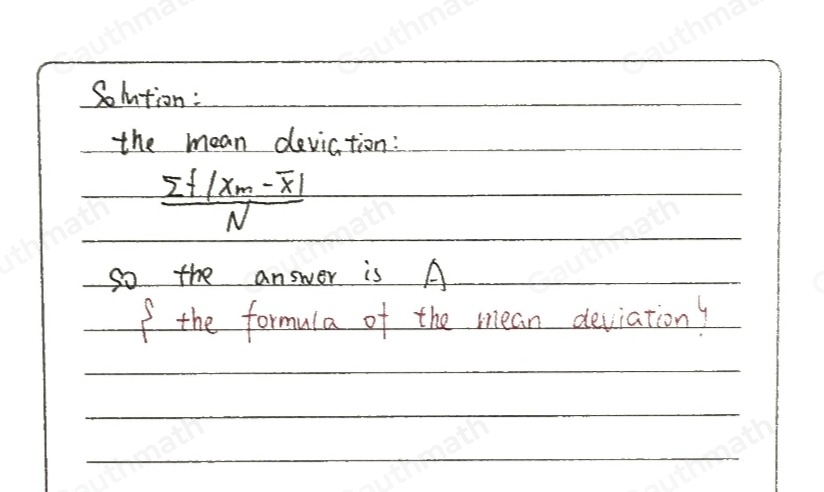 Solution:
the mean deviation:
Σf|Xm - X̄|
N
so the answer is A
{ the formula of the mean deviation}
Gauthmath